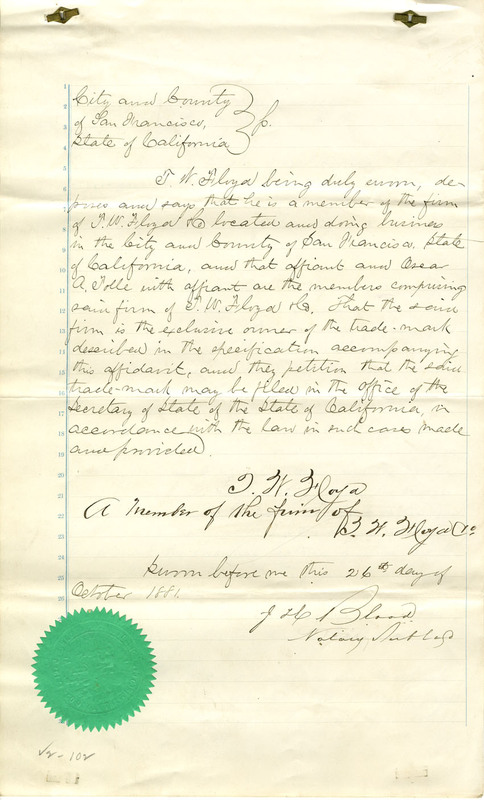 City and County
of San Francisco,
State of California
T. W. Floyd being duly sworn, de-
poses and says that he is a member of the firm
of T. W. Floyd & Co located and doing business
in the City and County of San Francisco. State
of California, and that affiant and Oscar
A. Tolle with affiant are the members comprising
said firm of T. W. Floyd & Co. That the said
firm is the exclusive owner of the trade-mark
described in the specification accompanying
this affidavit, and they petition that the said
trade-mark may be filed in the office of the
Secretary of State of the State of California, in
accordance with the law in such cases made
and provided.
T. W. Floyd
A Member of the firm of
T. W. Floyd & Co
Sworn before me this 26th day of
October 1881.
J H Blood
Notary Public
1
2
3
4
5
6
7
8
9
10
11
12
13
14
15
16
17
18
19
20
21
22
23
24
25
26